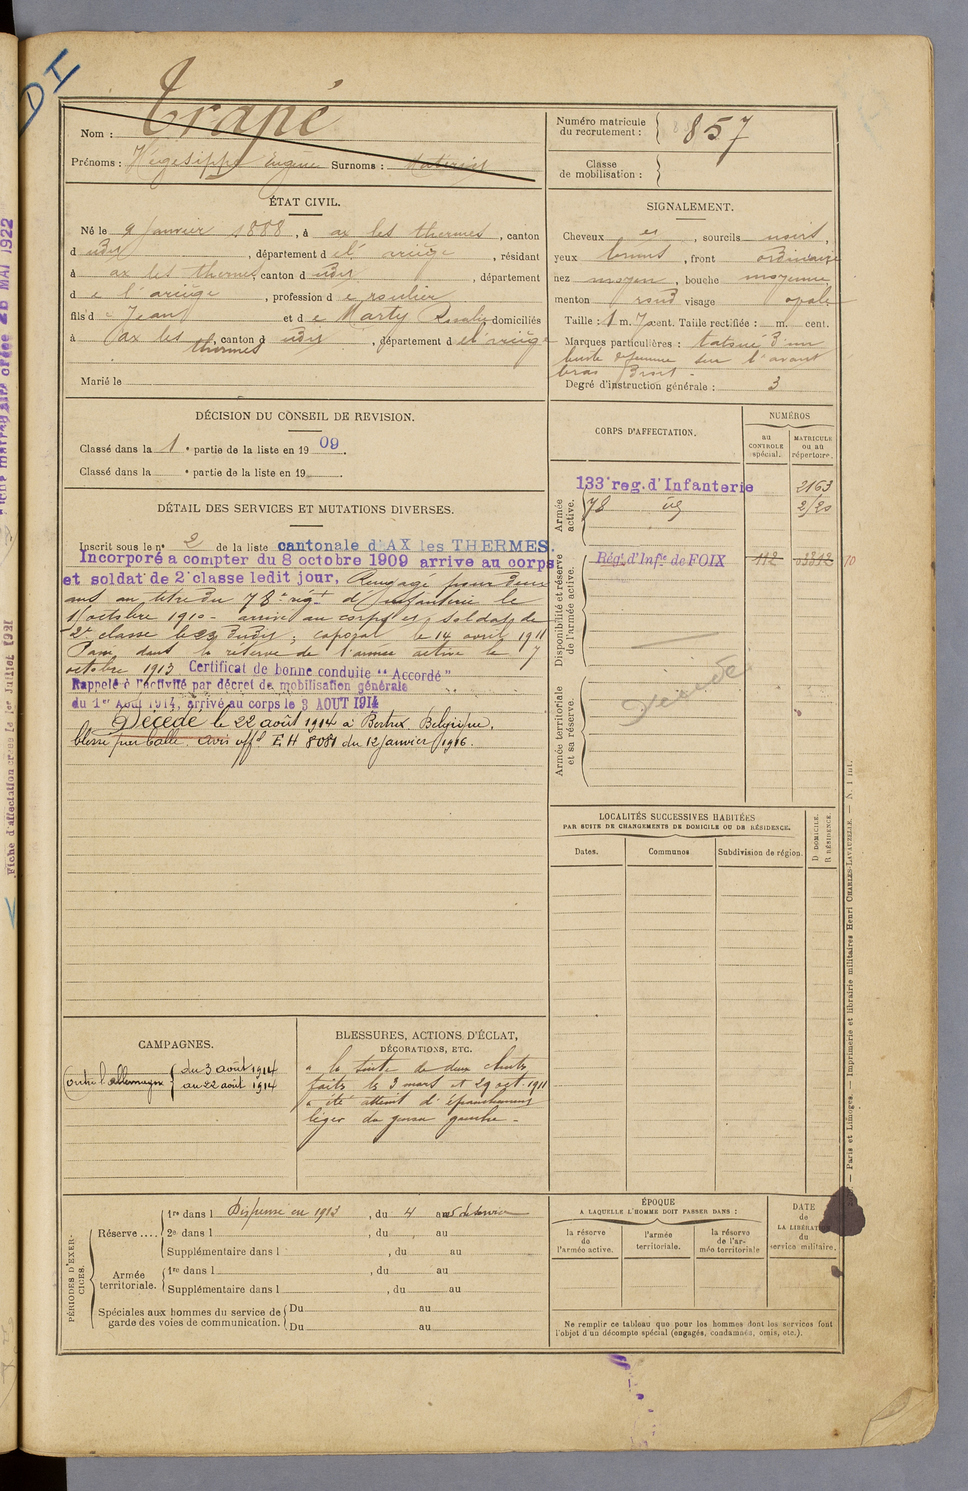 DI
Nom : Trapé
Prénoms : Hégésippe Eugène Surnoms :
Numéro matricule
du recrutement : 857
Classe
de mobilisation :
ÉTAT CIVIL.
Né le 9 janvier 1888, à ax les thermes, canton
d udit, département d el' ariège, résidant
à ax les thermes, canton d udit, département
d e l'ariège, profession d e roulier
fils d e Jean et d e Marty Rosalie domiciliés
à ax les thermes, canton d udit, département d el'ariège
Marié le
SIGNALEMENT.
Cheveux et, sourcils noirs,
yeux bruns, front ordinaire
nez moyen, bouche moyenne,
menton rond visage ovale
Taille : 1 m. 70 cent. Taille rectifiée : m. cent.
Marques particulières : tatoué d'un
buste de femme sur l'avant
bras droit -
Degré d'instruction générale : 3
DÉCISION DU CONSEIL DE REVISION.
Classé dans la 1 e partie de la liste en 1909.
Classé dans la e partie de la liste en 19
DÉTAIL DES SERVICES ET MUTATIONS DIVERSES.
Inscrit sous le n° 2 de la liste cantonale d'AX les THERMES.
Incorporé a compter du 8 octobre 1909 arrive au corps
et soldat de 2e classe ledit jour, Rengagé pour deux
ans au titre du 78e régt d'Infanterie le
octobre 1910 - arrivé au corps et soldat de
2e classe le 23 dudit ; caporal le 14 avril 1911
Passé dans la réserve de l'armée active le 7
octobre 1913 Certificat de bonne conduite "Accordé"
Rappelé à l'activité par décret de mobilisation générale
du 1er Août 1914, arrivé au corps le 3 AOUT 1914
Décédé le 22 août 1914 à Bertrix Belgique,
blessé par balle. avis offel EH 8081 du 12 janvier 1916.
CORPS D'AFFECTATION.
NUMÉROS
au
CONTROLE
spécial.
MATRICULE
ou au
répertoire.
Armée
active.
133e reg. d'Infanterie 2163
78 id
Disponibilité et réserve
de l'armée active.
Régt d'Infie de FOIX 112 03812 70
Armée territoriale
et sa réserve.
Décédé
LOCALITÉS SUCCESSIVES HABITÉES
PAR SUITE DE CHANGEMENTS DE DOMICILE OU DE RÉSIDENCE.
Dates.
Communes
Subdivision de région.
D DOMICILE.
R RÉSIDENCE.
CAMPAGNES.
Contre l'allemagne { du 3 août 1914
au 22 août 1914
BLESSURES, ACTIONS D'ÉCLAT,
DÉCORATIONS, ETC.
a la suite de deux chutes
faites le 3 mars et 29 oct. 1911
a été atteint d'épanchement
léger du genou gauche -
PÉRIODES D'EXER-
CICES.
Réserve ....
1re dans l Dispensé en 1913, du 4 au
2e dans l, du au
Supplémentaire dans l, du au
Armée
territoriale.
1re dans l, du au
Supplémentaire dans l, du au
Spéciales aux hommes du service de
garde des voies de communication.
Du au
Du au
ÉPOQUE
A LAQUELLE L'HOMME DOIT PASSER DANS :
la réserve
de
l'armée active.
l'armée
territoriale.
la réserve
de l'ar-
mée territoriale
DATE
de
LA LIBÉRAT
du
service militaire.
Ne remplir ce tableau que pour les hommes dont les services font
l'objet d'un décompte spécial (engagés, condamnés, omis, etc.).
Paris et Limoges. — Imprimerie et librairie militaires Henri CHARLES-LAVAUZELLE. — N. 1 int.
Fiche d'affectation créée le 1er Juillet 1921
créée 28 MAI 1922